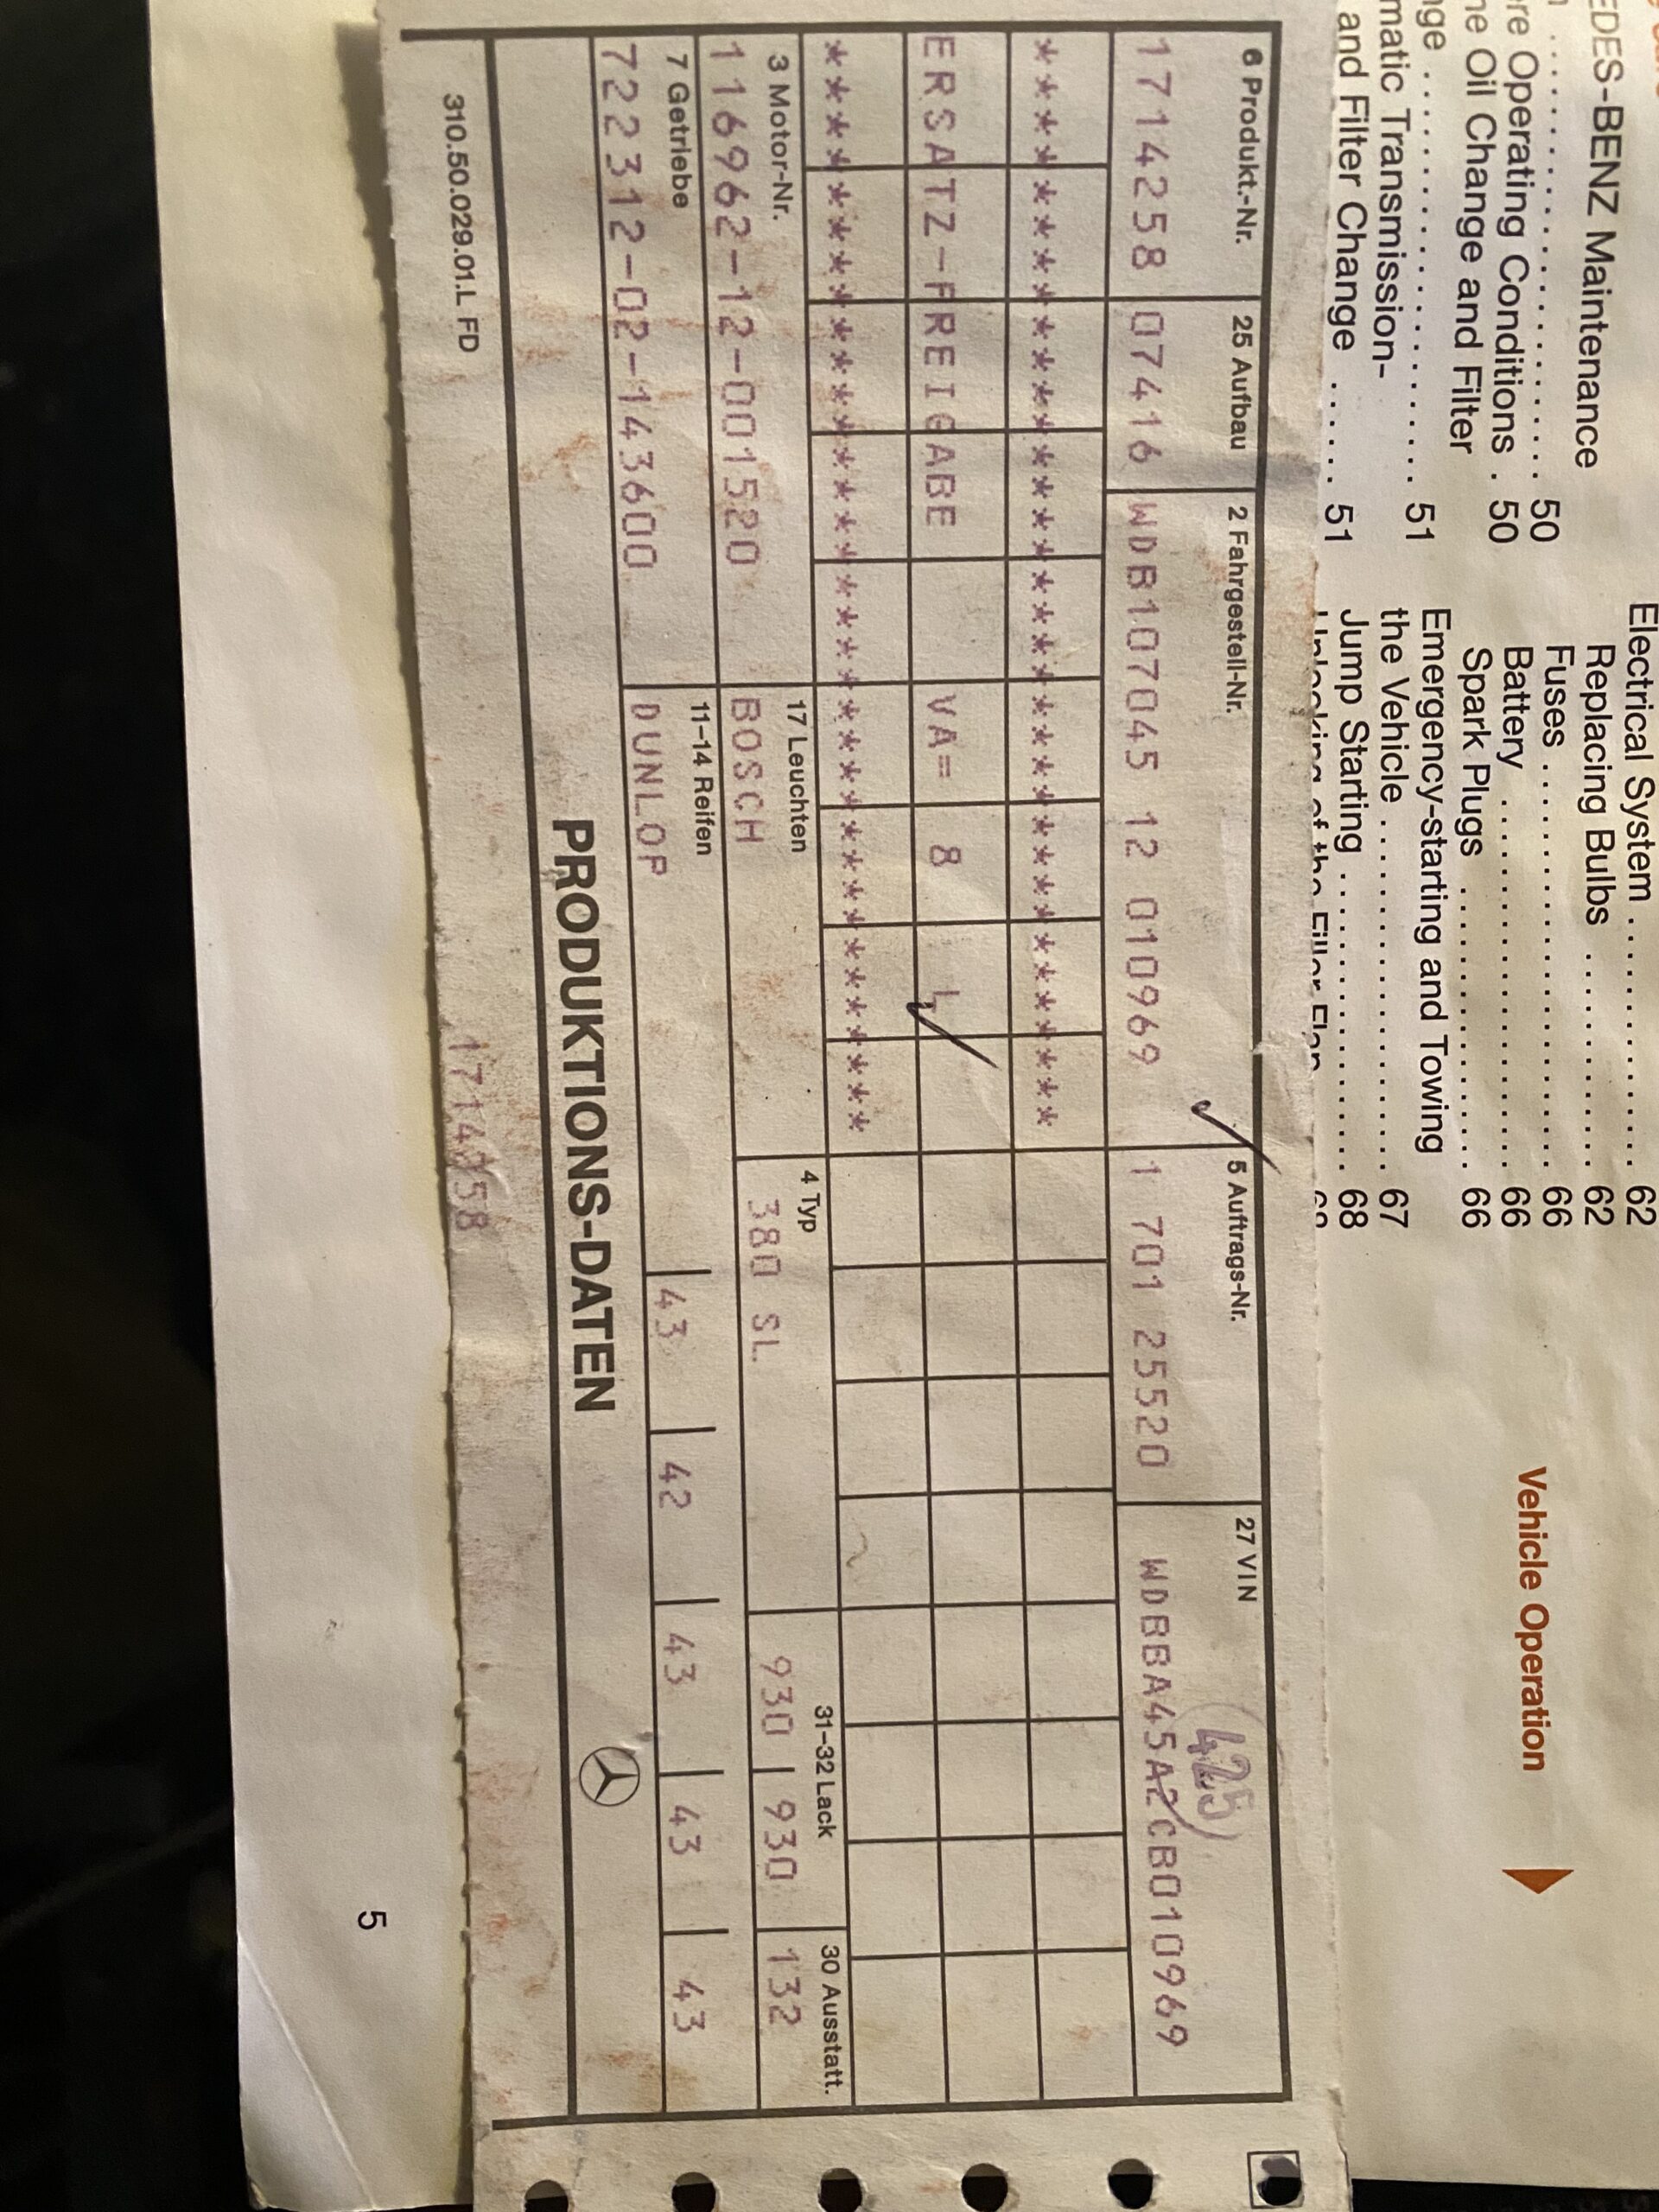 EDES-BENZ Maintenance
50
re Operating Conditions . 50
ne Oil Change and Filter
nge 51
matic Transmission-
and Filter Change 51
Electrical System 62
Replacing Bulbs 62
Fuses 66
Battery 66
Spark Plugs 66
Emergency-starting and Towing
the Vehicle 67
Jump Starting 68
Vehicle Operation
6 Produkt.-Nr. 25 Aufbau 2 Fahrgestell-Nr. 5 Auftrags-Nr. 27 VIN
(425)
1714258 07416 WDB107045 12 010969 1 701 25520 WDBBA45A2CB010969
************************************
ERSATZ-FREIGABE VA= 8 L
************************************
3 Motor-Nr. 17 Leuchten 4 Typ 31-32 Lack 30 Ausstatt.
116962-12-001520 BOSCH 380 SL. 930 930 132
7 Getriebe 11-14 Reifen
722312-02-143600 DUNLOP 43 42 43 43 43
PRODUKTIONS-DATEN
310.50.029.01.L FD 1714258
5